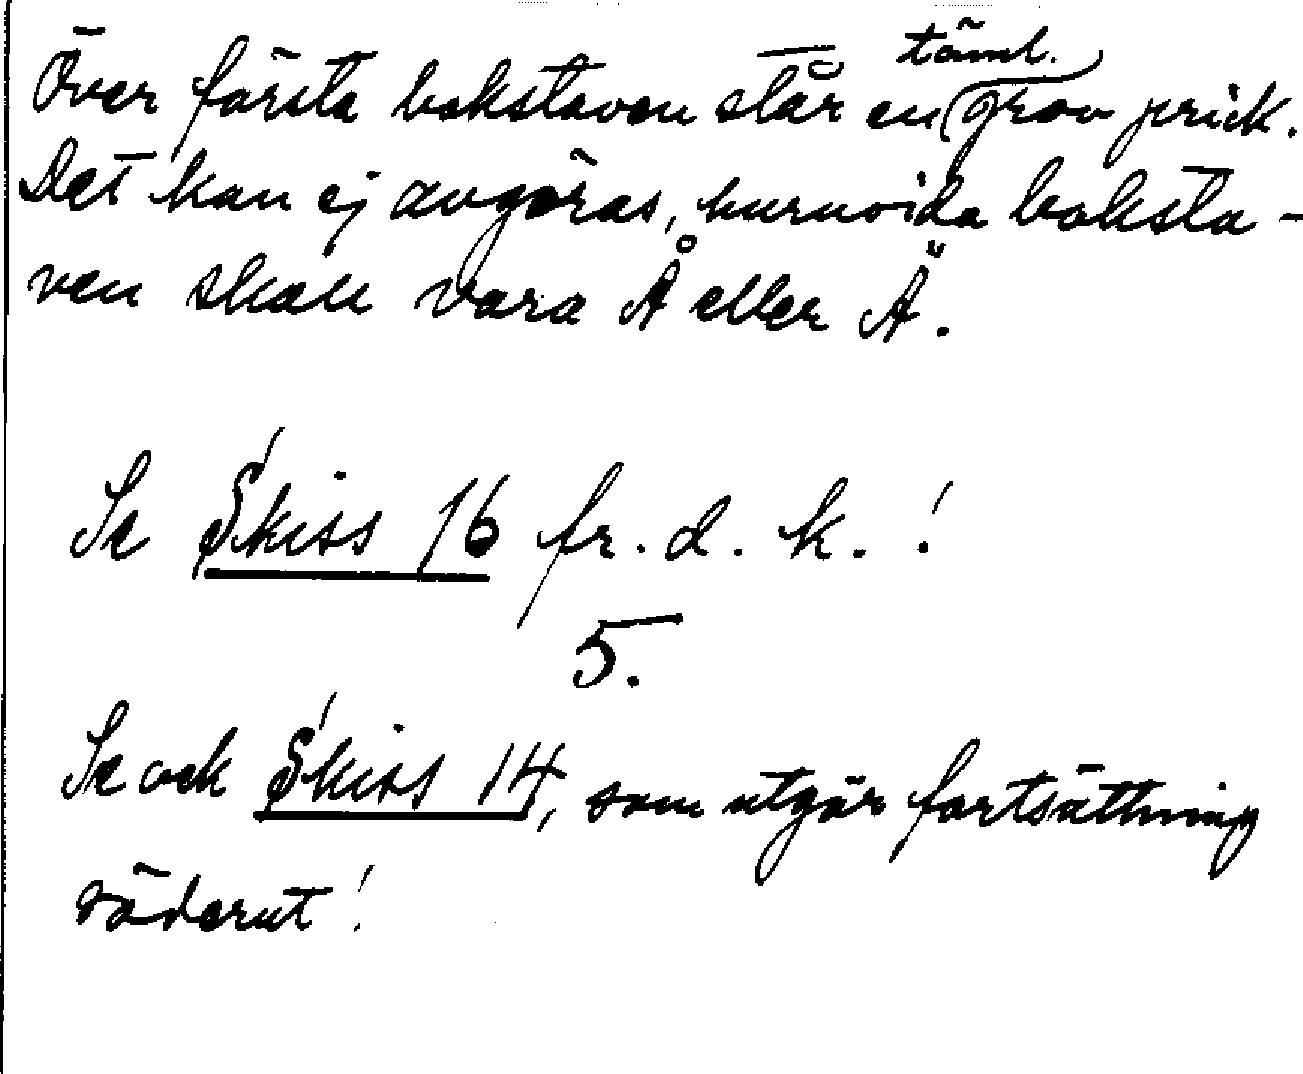 Över första bokstaven står en täml. grov prick.
Det kan ej avgöras, huruvida boksta-
ven skall vara Å eller Ä.
Se Skiss 16 fr. d. k. !
5.
Se ock Skiss 14, som utgör fortsättning
söderut !